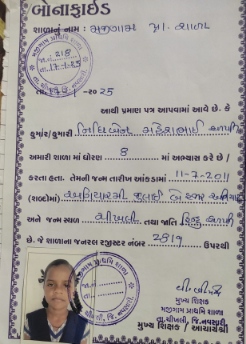 બોનાફાઈડ
શાળાનું નામ : મજીગામ પ્રા. શાળા
તા. 17-1-25
તા. -૨૦25
આથી પ્રમાણ પત્ર આપવામાં આવે છે. કે
કુમાર/કુમારી નિધિબેન મહેશભાઈ
અમારી શાળા માં ધોરણ 8 માં અભ્યાસ કરે છે /
કરતા હતા. તેમની જન્મ તારીખ આંકડામાં 11-7-2011
(શબ્દોમાં) અગિયારમી જુલાઈ બે હજાર અગિયાર
અને જન્મ સ્થળ ચીખલી તથા જાતિ હિન્દુ
છે. જે શાળાના જનરલ રજીસ્ટર નંબર 2819 ઉપરથી
મુખ્ય શિક્ષક
મજીગામ પ્રાથમિક શાળા
તા.ચીખલી, જિ.નવસારી
મુખ્ય શિક્ષક / આચાર્યશ્રી